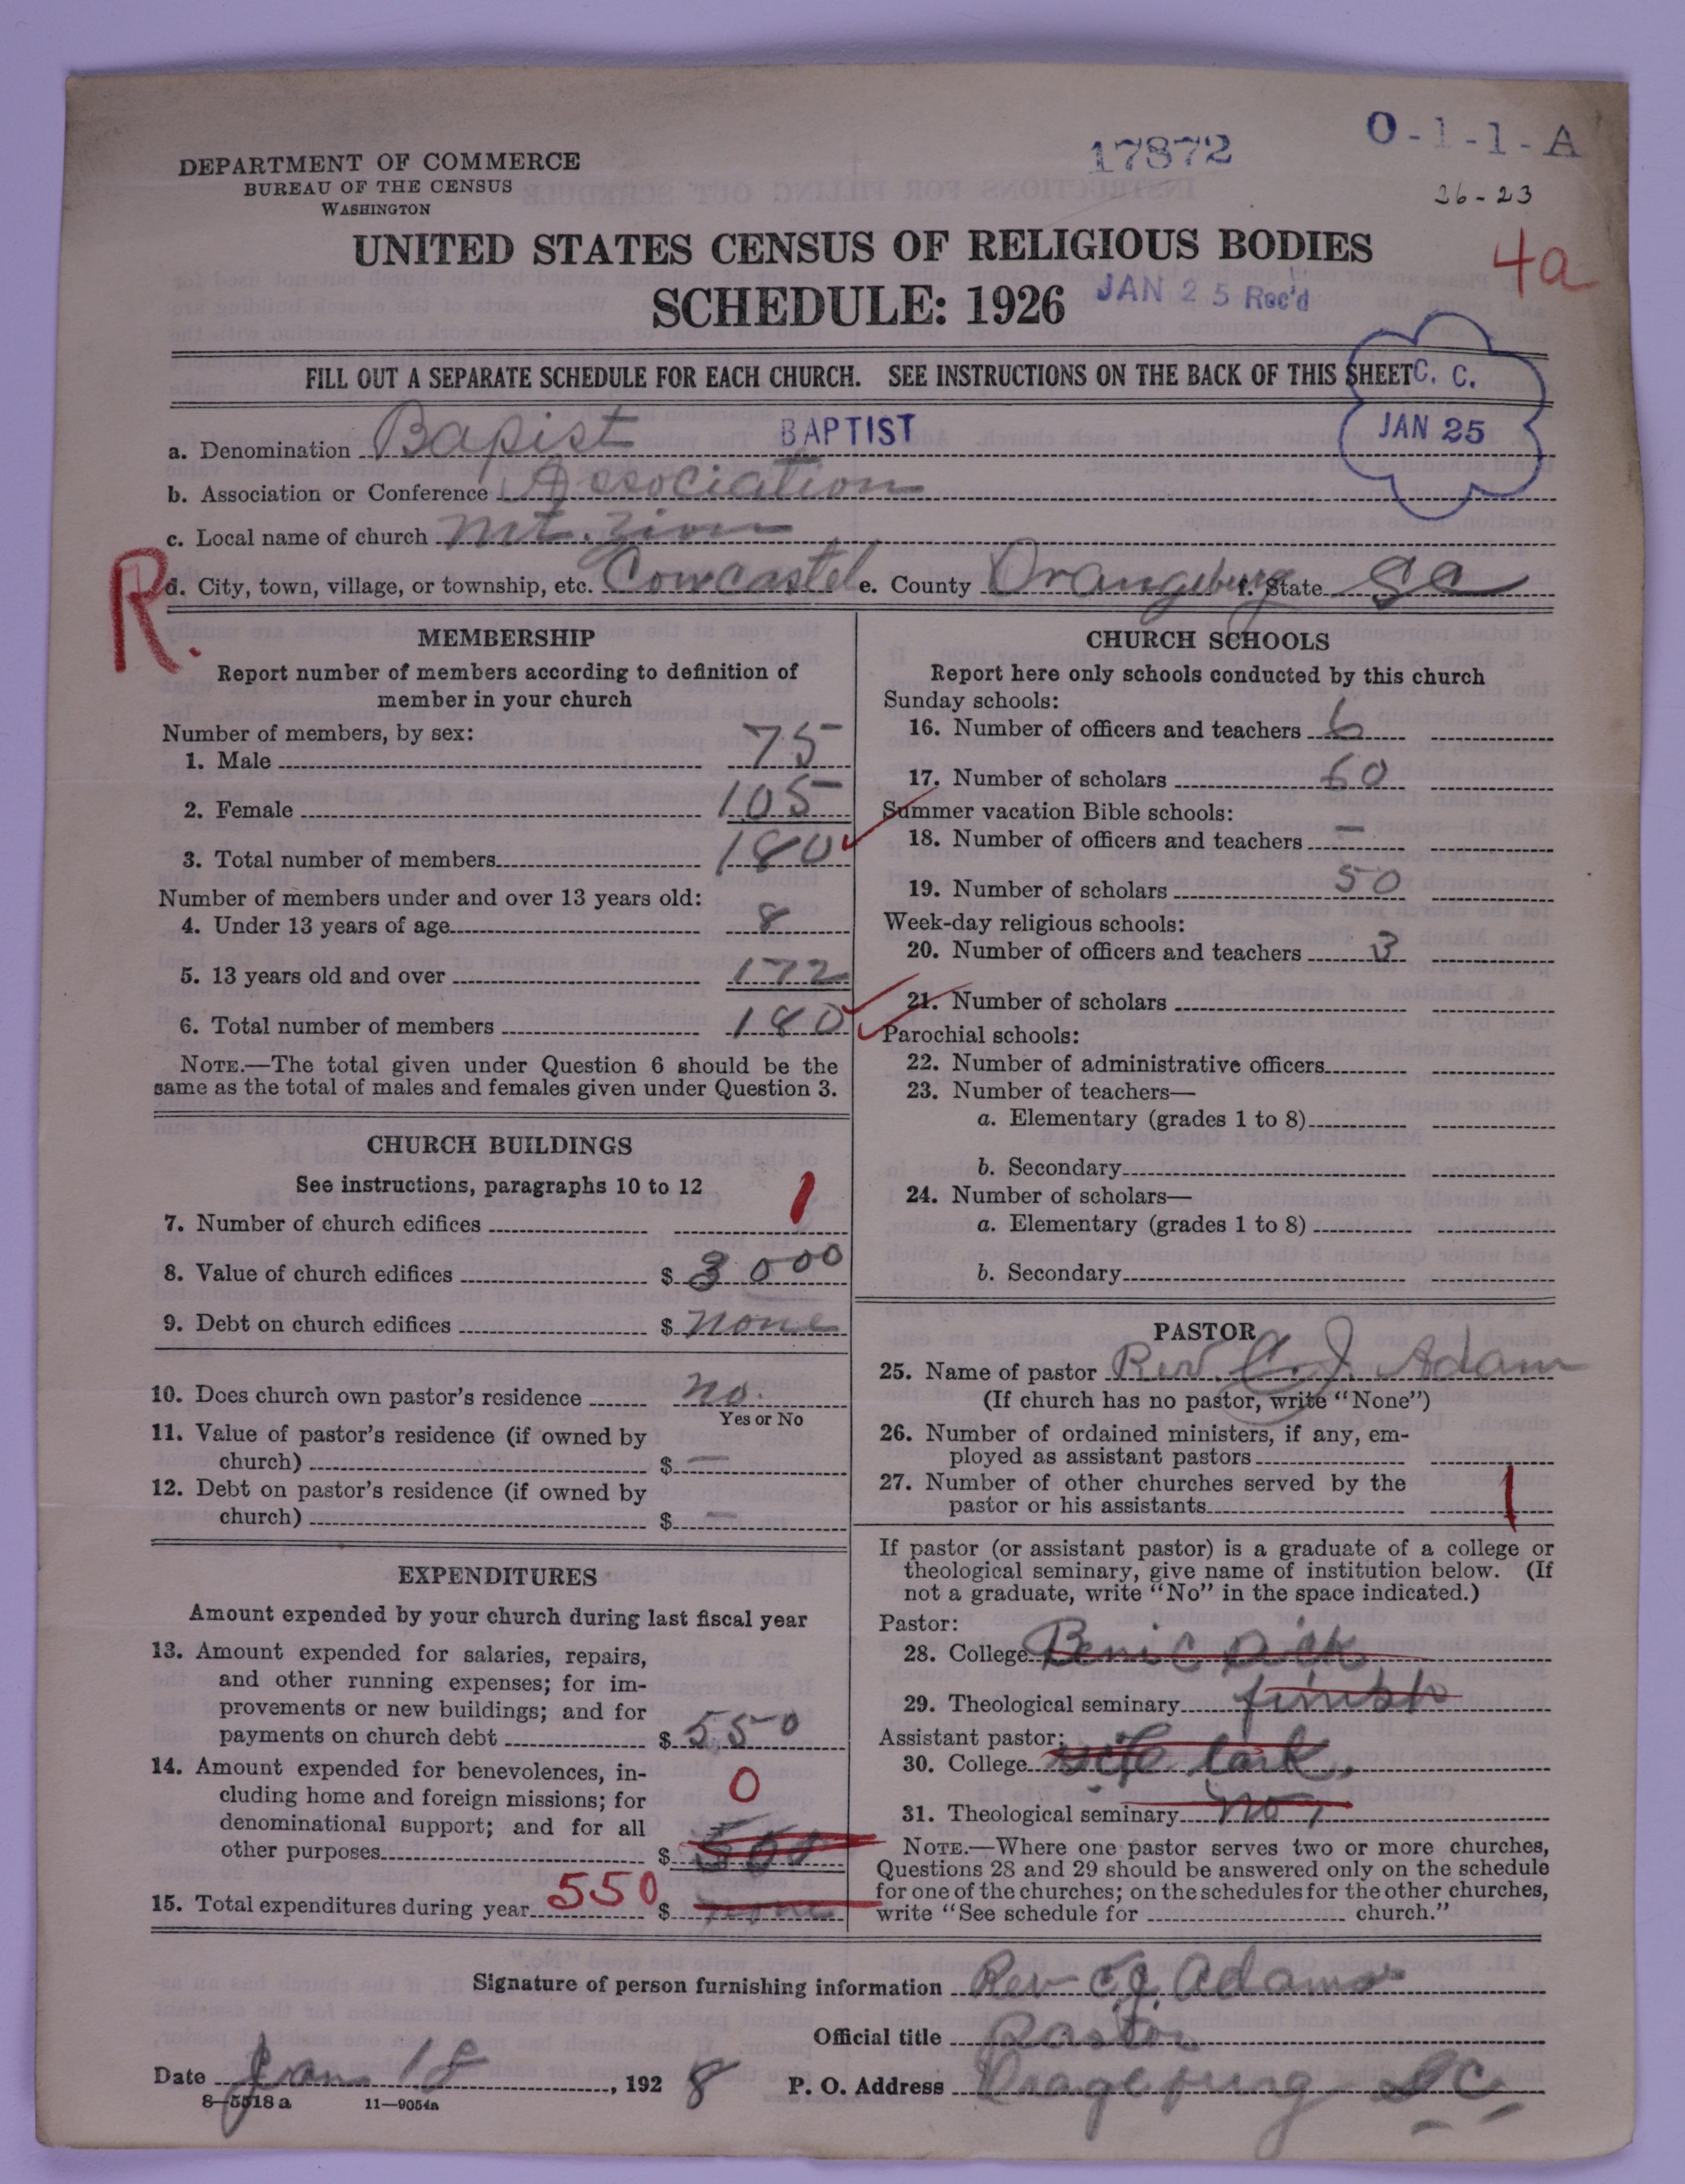 17872
O-1-1-A
DEPARTMENT OF COMMERCE
BUREAU OF THE CENSUS
WASHINGTON
26-23
UNITED STATES CENSUS OF RELIGIOUS BODIES
4a
SCHEDULE: 1926
JAN 25 Rec'd
FILL OUT A SEPARATE SCHEDULE FOR EACH CHURCH. SEE INSTRUCTIONS ON THE BACK OF THIS SHEET
C. C.
JAN 25
a. Denomination Bapist BAPTIST
b. Association or Conference Association
c. Local name of church Mt. Zion
R.
d. City, town, village, or township, etc. Cowcastel e. County Orangeburg f. State SC
MEMBERSHIP
Report number of members according to definition of
member in your church
Number of members, by sex:
1. Male 75
2. Female 105
3. Total number of members 180
Number of members under and over 13 years old:
4. Under 13 years of age 8
5. 13 years old and over 172
6. Total number of members 180
NOTE.—The total given under Question 6 should be the
same as the total of males and females given under Question 3.
CHURCH BUILDINGS
See instructions, paragraphs 10 to 12
7. Number of church edifices 1
8. Value of church edifices $ 3000
9. Debt on church edifices $ none
10. Does church own pastor's residence no.
Yes or No
11. Value of pastor's residence (if owned by
church) $ —
12. Debt on pastor's residence (if owned by
church) $ —
EXPENDITURES
Amount expended by your church during last fiscal year
13. Amount expended for salaries, repairs,
and other running expenses; for im-
provements or new buildings; and for
payments on church debt $ 550
14. Amount expended for benevolences, in-
cluding home and foreign missions; for
denominational support; and for all
other purposes $ 500
0
15. Total expenditures during year 550 $ none
CHURCH SCHOOLS
Report here only schools conducted by this church
Sunday schools:
16. Number of officers and teachers 6
17. Number of scholars 60
Summer vacation Bible schools:
18. Number of officers and teachers —
19. Number of scholars 50
Week-day religious schools:
20. Number of officers and teachers 3
21. Number of scholars
Parochial schools:
22. Number of administrative officers
23. Number of teachers—
a. Elementary (grades 1 to 8)
b. Secondary
24. Number of scholars—
a. Elementary (grades 1 to 8)
b. Secondary
PASTOR
25. Name of pastor Rev. C. J. Adam
(If church has no pastor, write "None")
26. Number of ordained ministers, if any, em-
ployed as assistant pastors
27. Number of other churches served by the
pastor or his assistants 1
If pastor (or assistant pastor) is a graduate of a college or
theological seminary, give name of institution below. (If
not a graduate, write "No" in the space indicated.)
Pastor:
28. College
29. Theological seminary finish
Assistant pastor:
30. College
31. Theological seminary no
NOTE.—Where one pastor serves two or more churches,
Questions 28 and 29 should be answered only on the schedule
for one of the churches; on the schedules for the other churches,
write "See schedule for church."
Signature of person furnishing information Rev C. J. Adams
Official title Pastor
Date Jan 18, 1928 P. O. Address Oragepurg SC
8—5518a 11—9054a